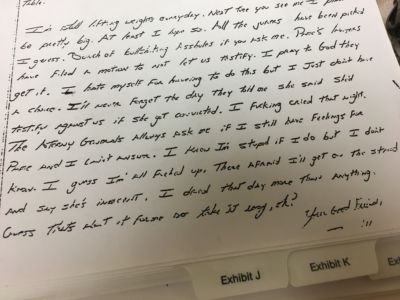 table.
I'm still lifting weights everyday. Next time you see me I plan to
be pretty big. At least I hope so. All the jurors have been picked
I guess. Bunch of bullshiting assholes if you ask me. Pam's lawyers
have filed a motion to not let us testify. I pray to God they
get it. I hate myself for having to do this but I just don't have
a choice. I'll never forget the day they told me she said she'd
testify against us if she got convicted. I fucking cried that night.
The Attorney Generals always ask me if I still have feelings for
Pame and I can't answer. I know I'm stupid if I do but I don't
know. I guess I'm all fucked up. There afraid I'll get on the stand
and say she's innocent. I dread that day more than anything.
Guess that's about it for me so take it easy, eh?
Your Good Friend,
Exhibit J
Exhibit K